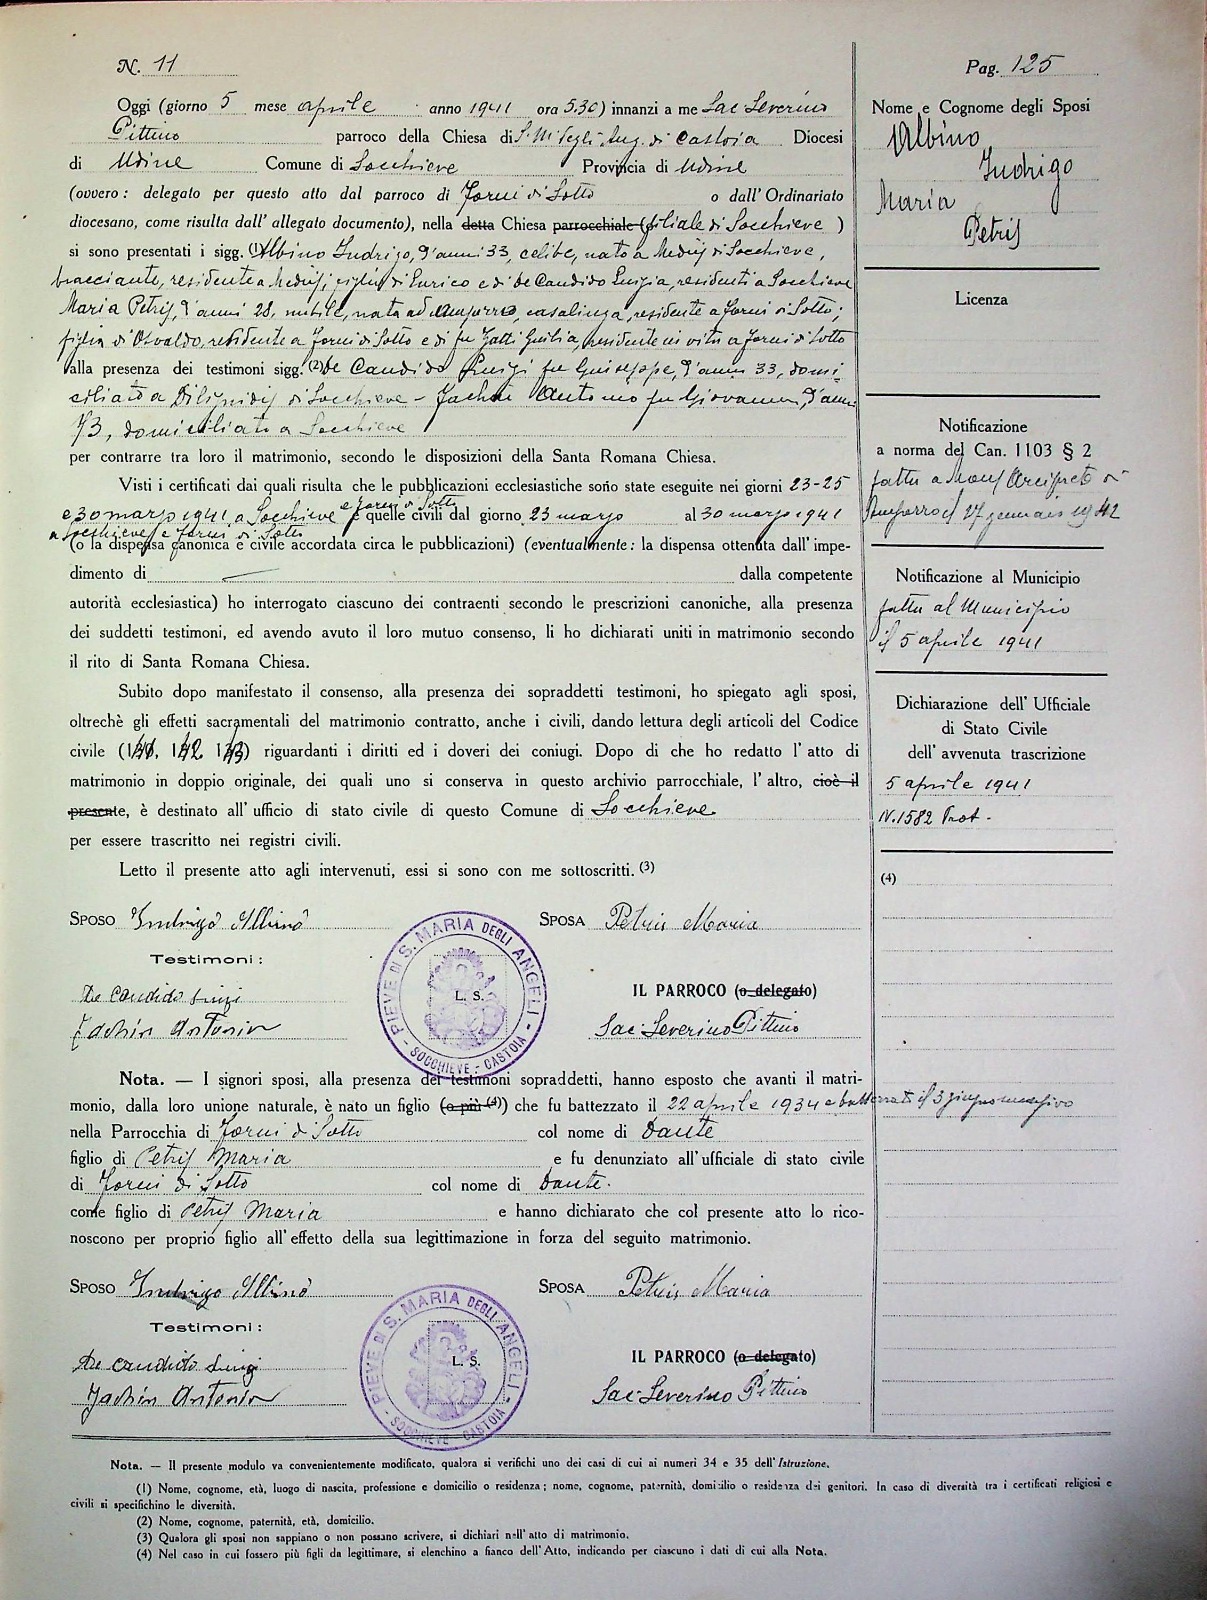 N. 11
Pag. 125
Oggi (giorno 5 mese aprile anno 1941 ora 5.30) innanzi a me Sac. Severino
Pittino parroco della Chiesa di S. M. degli Ang. di Castoia Diocesi
di Udine Comune di Socchieve Provincia di Udine
(ovvero: delegato per questo atto dal parroco di Forni di Sotto o dall'Ordinariato
diocesano, come risulta dall'allegato documento), nella detta Chiesa parrocchiale (filiale di Socchieve)
si sono presentati i sigg. (1) Albino Indrigo, d'anni 33, celibe, nato a Mediis di Socchieve,
bracciante, residente a Mediis, figlio di Enrico e di De Candido Luigia, residenti a Socchieve
Maria Petris, d'anni 28, nubile, nata ad Ampezzo, casalinga, residente a Forni di Sotto;
figlia di Osvaldo, residente a Forni di Sotto e di fu Fatti Giulia, residente in vita a Forni di Sotto
alla presenza dei testimoni sigg. (2) De Candido Luigi fu Giuseppe, d'anni 33, domi-
ciliato a Dilignidis di Socchieve - Jachin Antonio fu Giovanni, d'anni
73, domiciliato a Socchieve
per contrarre tra loro il matrimonio, secondo le disposizioni della Santa Romana Chiesa.
Visti i certificati dai quali risulta che le pubblicazioni ecclesiastiche sono state eseguite nei giorni 23-25
e 30 marzo 1941 a Socchieve e Forni di Sotto e quelle civili dal giorno 23 marzo al 30 marzo 1941
a Socchieve e Forni di Sotto
(o la dispensa canonica e civile accordata circa le pubblicazioni) (eventualmente: la dispensa ottenuta dall'impe-
dimento di dalla competente
autorità ecclesiastica) ho interrogato ciascuno dei contraenti secondo le prescrizioni canoniche, alla presenza
dei suddetti testimoni, ed avendo avuto il loro mutuo consenso, li ho dichiarati uniti in matrimonio secondo
il rito di Santa Romana Chiesa.
Subito dopo manifestato il consenso, alla presenza dei sopraddetti testimoni, ho spiegato agli sposi,
oltrechè gli effetti sacramentali del matrimonio contratto, anche i civili, dando lettura degli articoli del Codice
civile ( ) riguardanti i diritti ed i doveri dei coniugi. Dopo di che ho redatto l'atto di
matrimonio in doppio originale, dei quali uno si conserva in questo archivio parrocchiale, l'altro, cioè il
presente, è destinato all'ufficio di stato civile di questo Comune di Socchieve
per essere trascritto nei registri civili.
Letto il presente atto agli intervenuti, essi si sono con me sottoscritti. (3)
SPOSO Indrigo Albino
SPOSA Petris Maria
Testimoni:
De Candido Luigi
Jachin Antonio
PIEVE DI S. MARIA DEGLI ANGELI - SOCCHIEVE - CASTOIA -
L. S.
IL PARROCO (o delegato)
Sac. Severino Pittino
Nota. — I signori sposi, alla presenza dei testimoni sopraddetti, hanno esposto che avanti il matri-
monio, dalla loro unione naturale, è nato un figlio (o più (4)) che fu battezzato il 22 aprile 1934 e battezzato il 3 giugno
nella Parrocchia di Forni di Sotto col nome di Dante
figlio di Petris Maria e fu denunziato all'ufficiale di stato civile
di Forni di Sotto col nome di Dante.
come figlio di Petris Maria e hanno dichiarato che col presente atto lo rico-
noscono per proprio figlio all'effetto della sua legittimazione in forza del seguito matrimonio.
SPOSO Indrigo Albino
SPOSA Petris Maria
Testimoni:
De Candido Luigi
Jachin Antonio
PIEVE DI S. MARIA DEGLI ANGELI - SOCCHIEVE - CASTOIA -
L. S.
IL PARROCO (o delegato)
Sac. Severino Pittino
Nome e Cognome degli Sposi
Albino
Indrigo
Maria
Petris
Licenza
Notificazione
a norma del Can. 1103 § 2
fatta a Mons. Arciprete di
Ampezzo il 27 gennaio 1942
Notificazione al Municipio
fatta al Municipio
il 5 aprile 1941
Dichiarazione dell'Ufficiale
di Stato Civile
dell'avvenuta trascrizione
5 aprile 1941
N. 1582 Prot.
(4)
Nota. — Il presente modulo va convenientemente modificato, qualora si verifichi uno dei casi di cui ai numeri 34 e 35 dell'Istruzione.
(1) Nome, cognome, età, luogo di nascita, professione e domicilio o residenza; nome, cognome, paternità, domicilio o residenza dei genitori. In caso di diversità tra i certificati religiosi e
civili si specifichino le diversità.
(2) Nome, cognome, paternità, età, domicilio.
(3) Qualora gli sposi non sappiano o non possano scrivere, si dichiari nell'atto di matrimonio.
(4) Nel caso in cui fossero più figli da legittimare, si elenchino a fianco dell'Atto, indicando per ciascuno i dati di cui alla Nota.